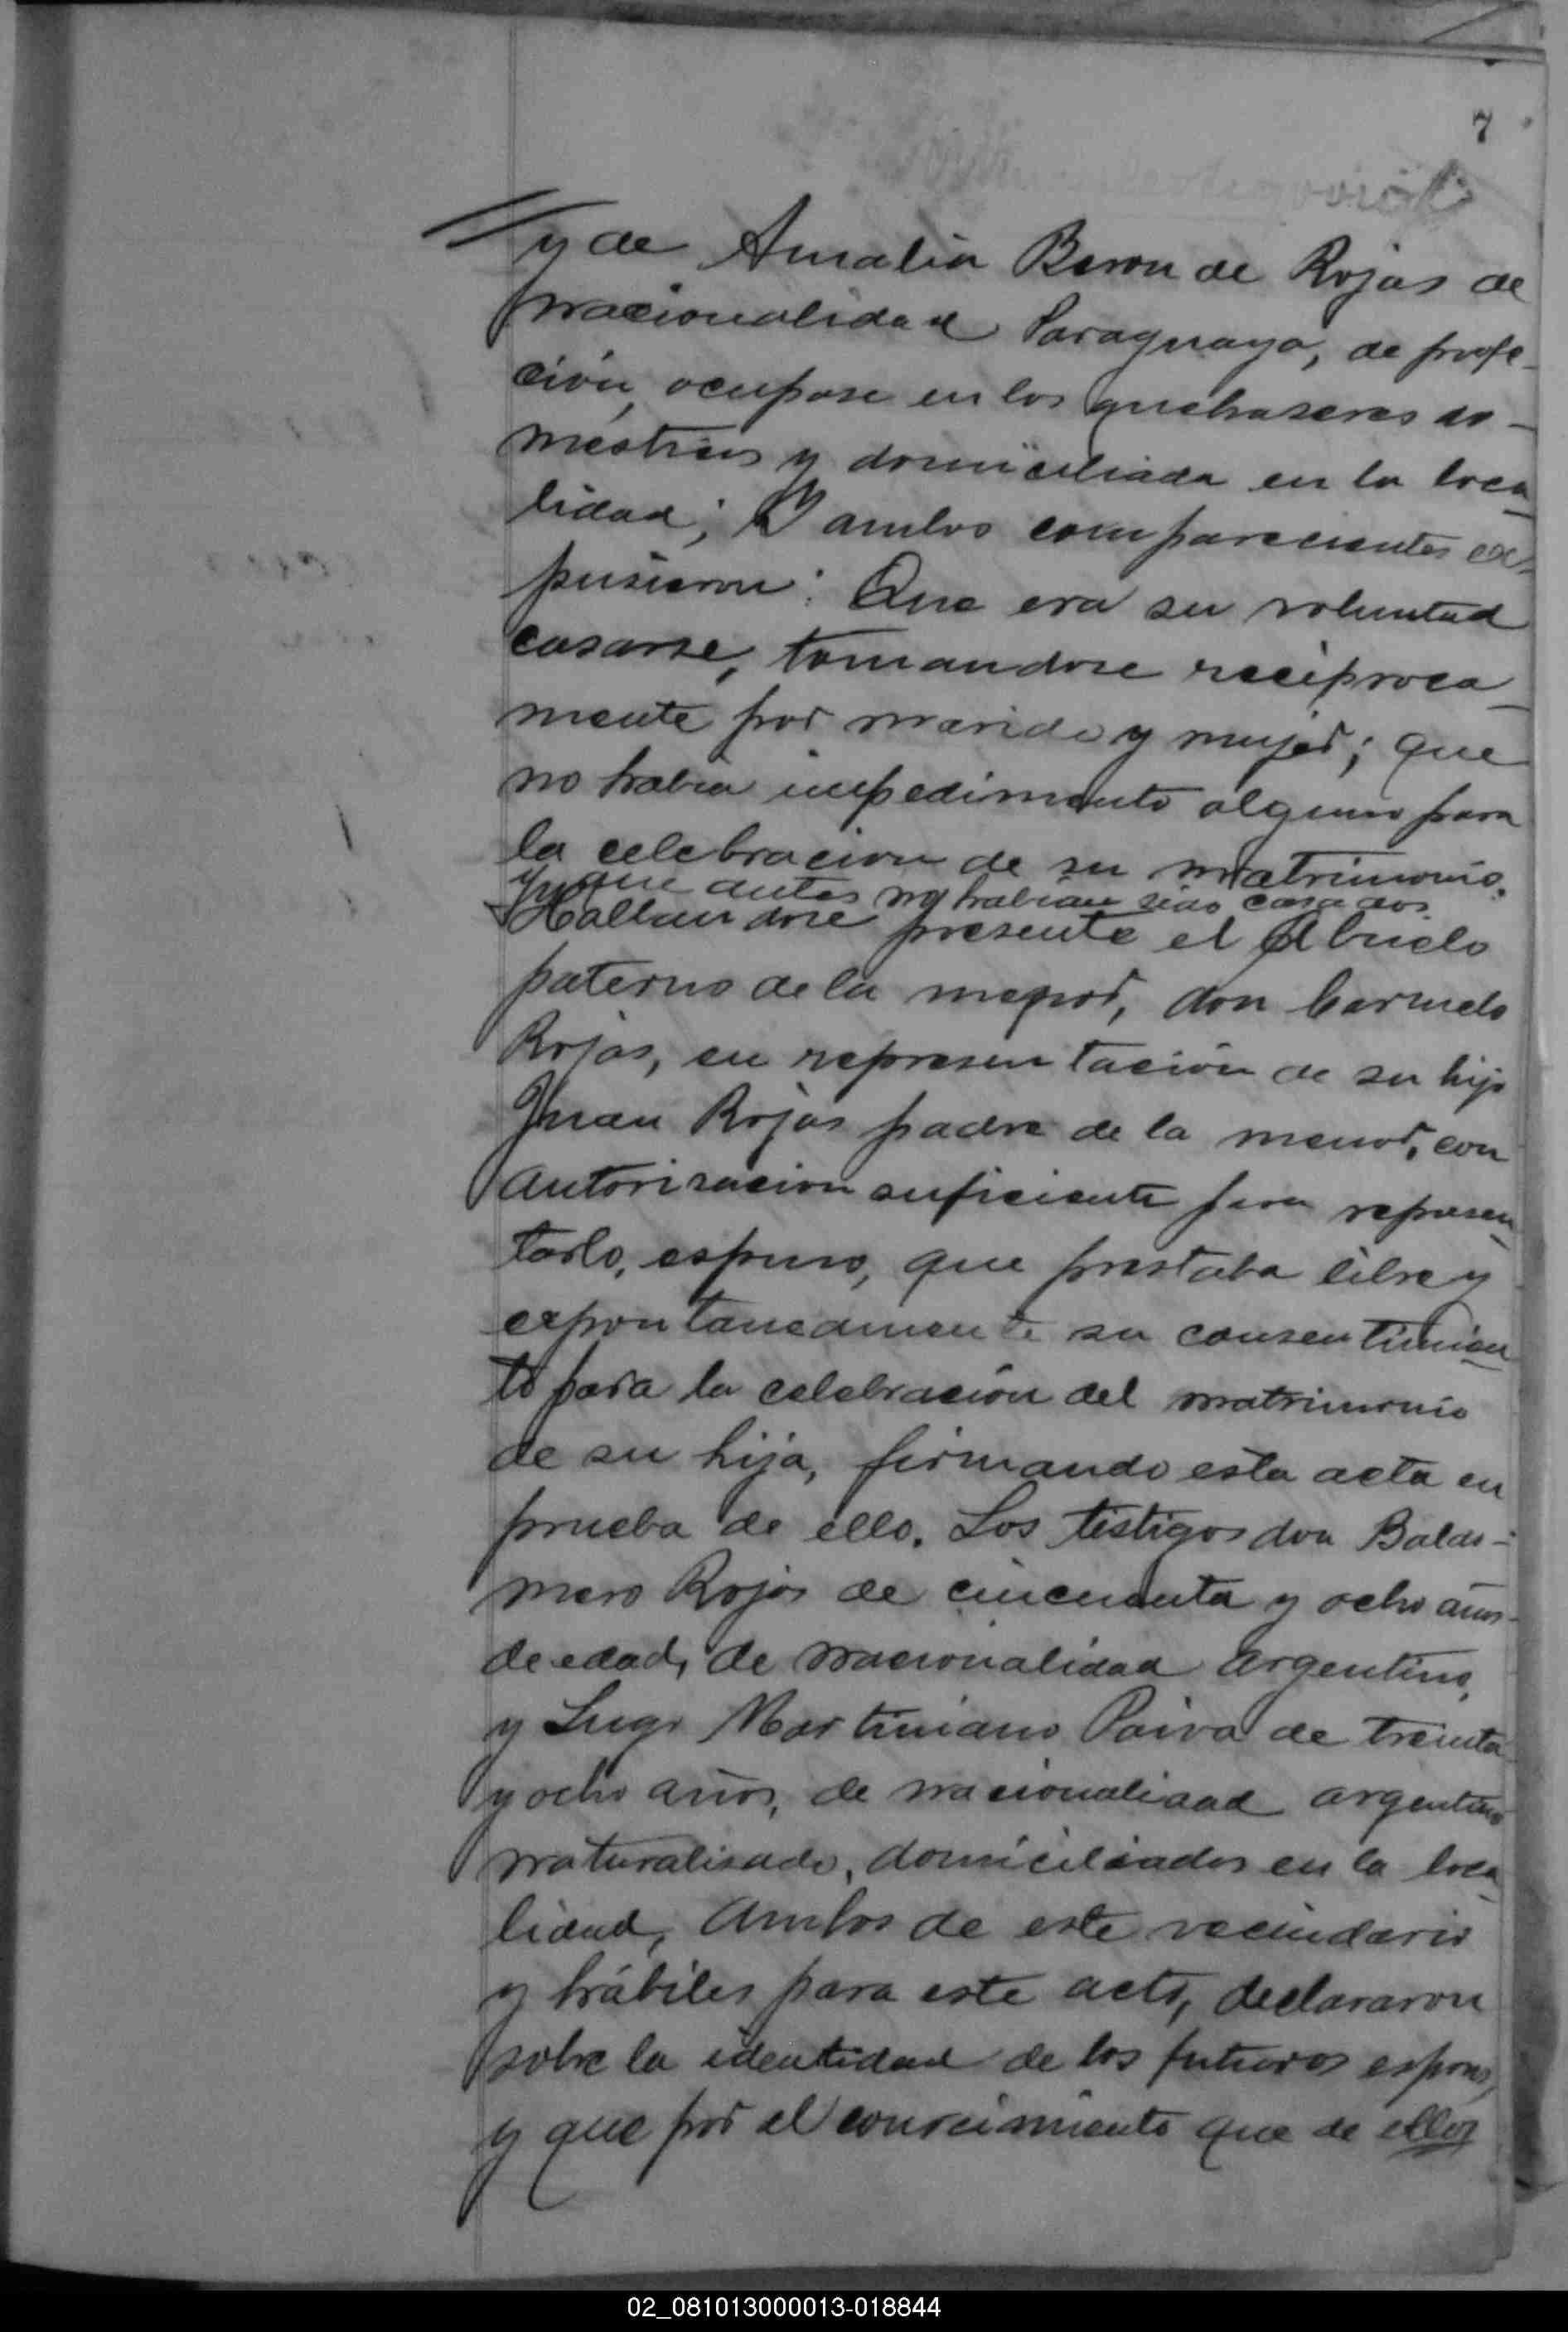 7
y de Amalia Beron de Rojas de
nacionalidad Paraguaya, de profe-
ción, ocupase en los quehaseres do-
mésticos y domiciliada en la loca-
lidad; Y ambos comparecientes ex-
pusieron: Que era su voluntad
casarse, tomandose reciproca-
mente por marido y mujer; que
no habia impedimento alguno para
la celebracion de su matrimonio.
y que antes no habian sido casados
Hallandose presente el Abuelo
paterno de la menor, don Carmelo
Rojas, en representación de su hijo
Juan Rojas padre de la menor, con
autorisacion suficiente para represen-
tarlo, espuso, que prestaba libre y
espontaneamente su consentimien-
to para la celebración del matrimonio
de su hija, firmando esta acta en
prueba de ello. Los testigos don Baldo-
mero Rojas de cincuenta y ocho años
de edad, de nacionalidad argentino,
y Lugo Martiniano Paiva de treinta
y ocho años, de nacionalidad argentino
naturalisado, domiciliados en la loca-
lidad, Ambos de este vecindario
y hábiles para este acto, declararon
sobre la identidad de los futuros esposos,
y que por el conocimiento que de ellos
02_081013000013-018844